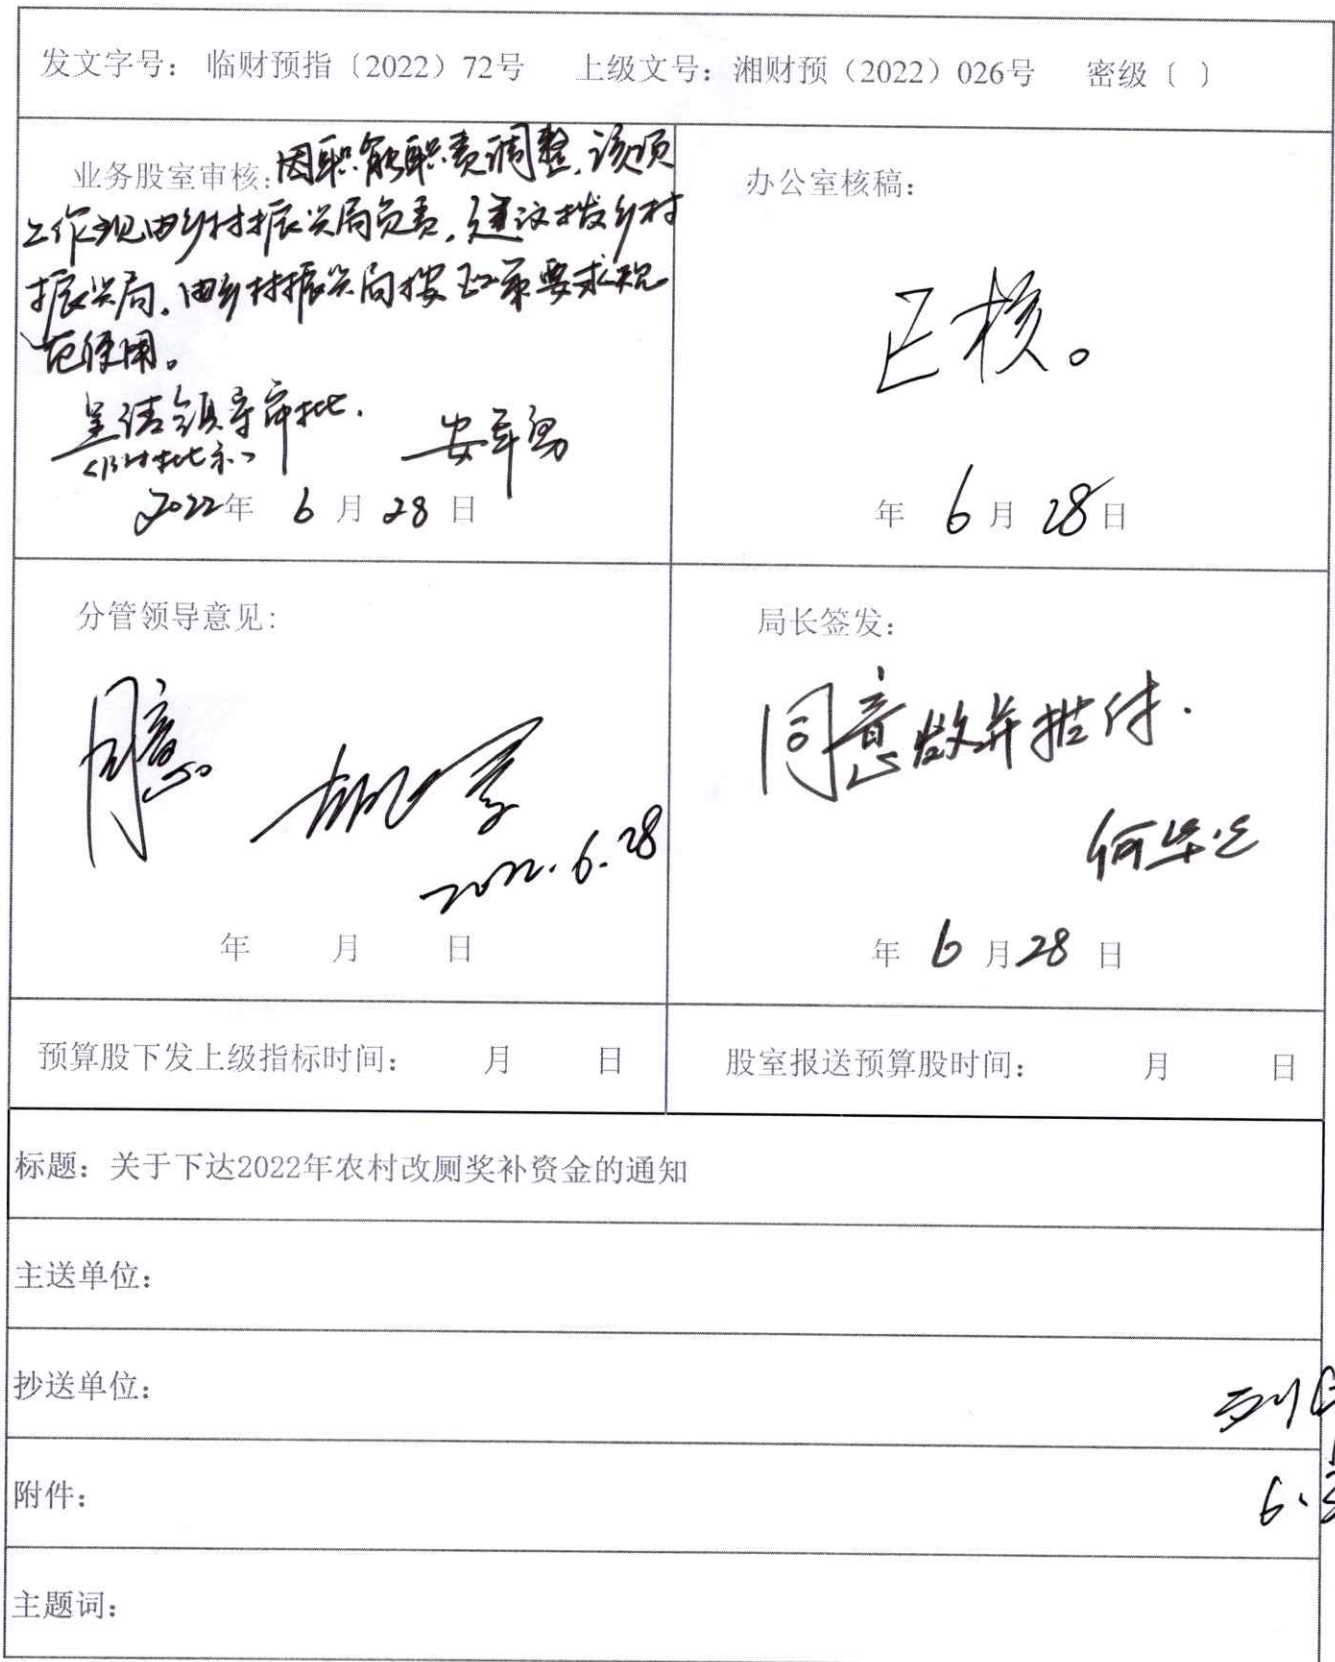 发文字号： 临财预指〔2022〕72号 上级文号：湘财预（2022）026号 密级〔 〕
业务股室审核：因职能职责调整，该项
工作现由乡村振兴局负责，建议拨乡村
振兴局，由乡村振兴局按政策要求规
范使用。
呈请领导审批．
2022年 6 月 28 日
办公室核稿：
已核。
年 6 月 28 日
分管领导意见：
同意
2022.6.28
年 月 日
局长签发：
同意 并拨付．
年 6 月 28 日
预算股下发上级指标时间： 月 日
股室报送预算股时间： 月 日
标题：关于下达2022年农村改厕奖补资金的通知
主送单位：
抄送单位：
附件：
主题词：